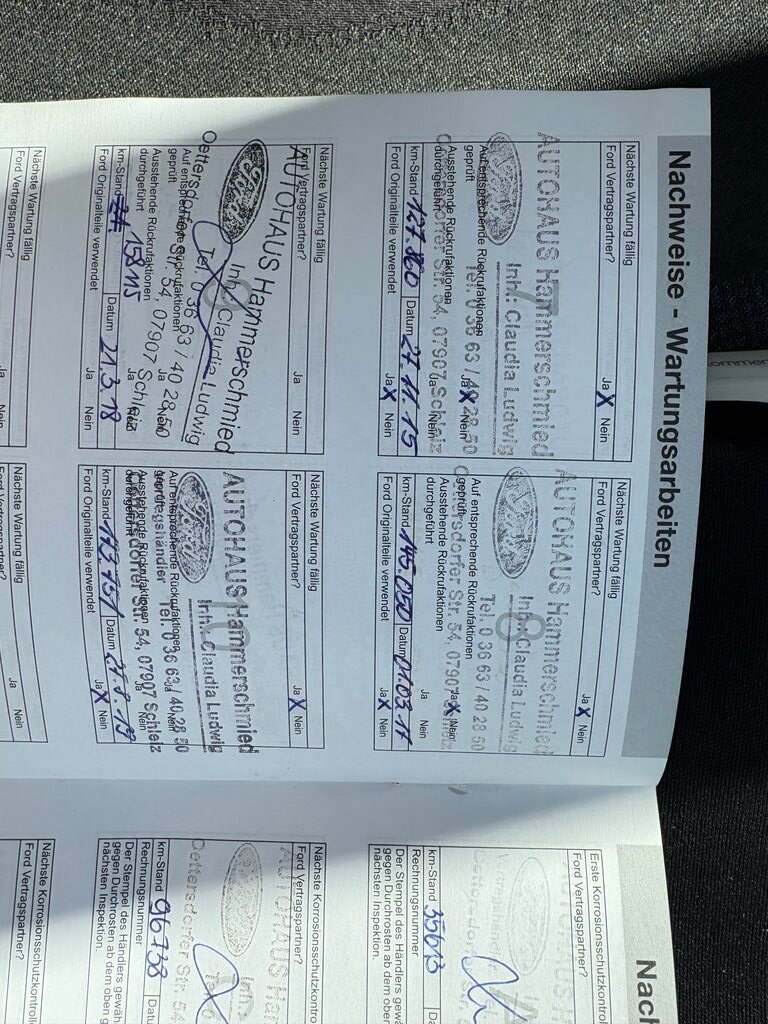 Nachweise - Wartungsarbeiten
Nächste Wartung fällig
Ford Vertragspartner?
Ja X Nein
7
AUTOHAUS Hammerschmied
Inh.: Claudia Ludwig
Tel. 0 36 63 / 40 28 50
Oettersdorfer Str. 54, 07907 Schleiz
Auf entsprechende Rückrufaktionen
geprüft
Ja X Nein
Ausstehende Rückrufaktionen
durchgeführt
Ja Nein
km-Stand 127.860 Datum 27.11.15
Ford Originalteile verwendet
Ja X Nein
Nächste Wartung fällig
Ford Vertragspartner?
Ja X Nein
8
AUTOHAUS Hammerschmied
Inh.: Claudia Ludwig
Tel. 0 36 63 / 40 28 50
Oettersdorfer Str. 54, 07907 Schleiz
Auf entsprechende Rückrufaktionen
geprüft
Ja X Nein
Ausstehende Rückrufaktionen
durchgeführt
Ja Nein
km-Stand 145.050 Datum 01.03.17
Ford Originalteile verwendet
Ja X Nein
Nächste Wartung fällig
Ford Vertragspartner?
Ja Nein
AUTOHAUS Hammerschmied
Ford
Inh.: Claudia Ludwig
Tel. 0 36 63 / 40 28 50
Oettersdorfer Str. 54, 07907 Schleiz
Auf entsprechende Rückrufaktionen
geprüft
Ja Nein
Ausstehende Rückrufaktionen
durchgeführt
Ja Nein
km-Stand 158115 Datum 21.3.18
Ford Originalteile verwendet
Ja Nein
Nächste Wartung fällig
Ford Vertragspartner?
Ja X Nein
10
AUTOHAUS Hammerschmied
Ford
Inh.: Claudia Ludwig
Vertragshändler Tel. 0 36 63 / 40 28 50
Oettersdorfer Str. 54, 07907 Schleiz
Auf entsprechende Rückrufaktionen
geprüft
Ja Nein
Ausstehende Rückrufaktionen
durchgeführt
Ja Nein
km-Stand 173.751 Datum 21.8.19
Ford Originalteile verwendet
Ja X Nein
Nächste Wartung fällig
Ford Vertragspartner?
Ja Nein
Nächste Wartung fällig
Ford Vertragspartner?
Ja Nein
Nach
Erste Korrosionsschutzkontroll
Ford Vertragspartner?
km-Stand 35613
Rechnungsnummer
Der Stempel des Händlers gewäh
gegen Durchrosten ab dem oben g
nächsten Inspektion.
Nächste Korrosionsschutzkontro
Ford Vertragspartner?
AUTOHAUS Ham
Inh.
Oettersdorfer Str. 54
km-Stand 96738 Datu
Rechnungsnummer
Der Stempel des Händlers gewäh
gegen Durchrosten ab dem oben g
nächsten Inspektion.
Nächste Korrosionsschutzkontroll
Ford Vertragspartner?